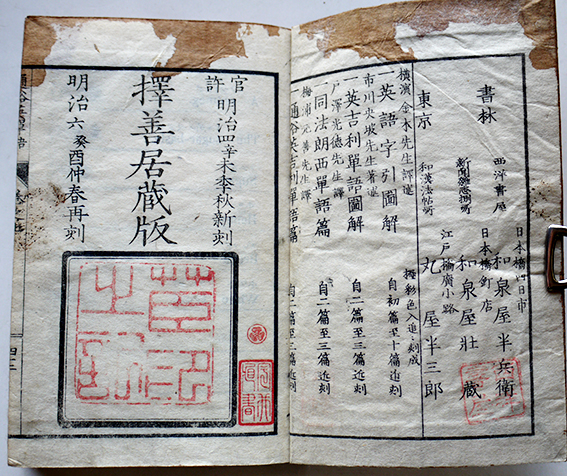 書林
西洋書屋
日本橋四日市
和泉屋半兵衛
新聞
日本橋釘店
和泉屋壮蔵
和漢法帖所
江戸橋廣小路
東京
丸屋半三郎
横濱
金木先生譯選
一英語字引圖解
自初篇至十篇近刻
市川央坡先生著選
一英吉利單語圖解
自二篇至三篇近刻
廣澤光德先生譯
一同法朗西單語篇
自二篇至三篇近刻
梅浦元善先生譯
一通俗英吉利單語篇
自二篇至三篇近刻
官許
明治四辛未季秋新刻
擇善居蔵版
明治六癸酉仲春再刻